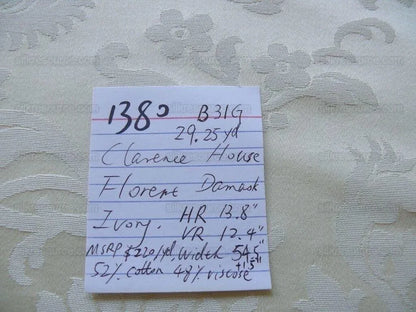 1380 B31G
29.25 yd
Clarence House
Florent Damask
Ivory. HR 13.8"
VR 12.4"
MSRP $220/yd, Width 54.5"
+1.5"
52% cotton 48% viscose